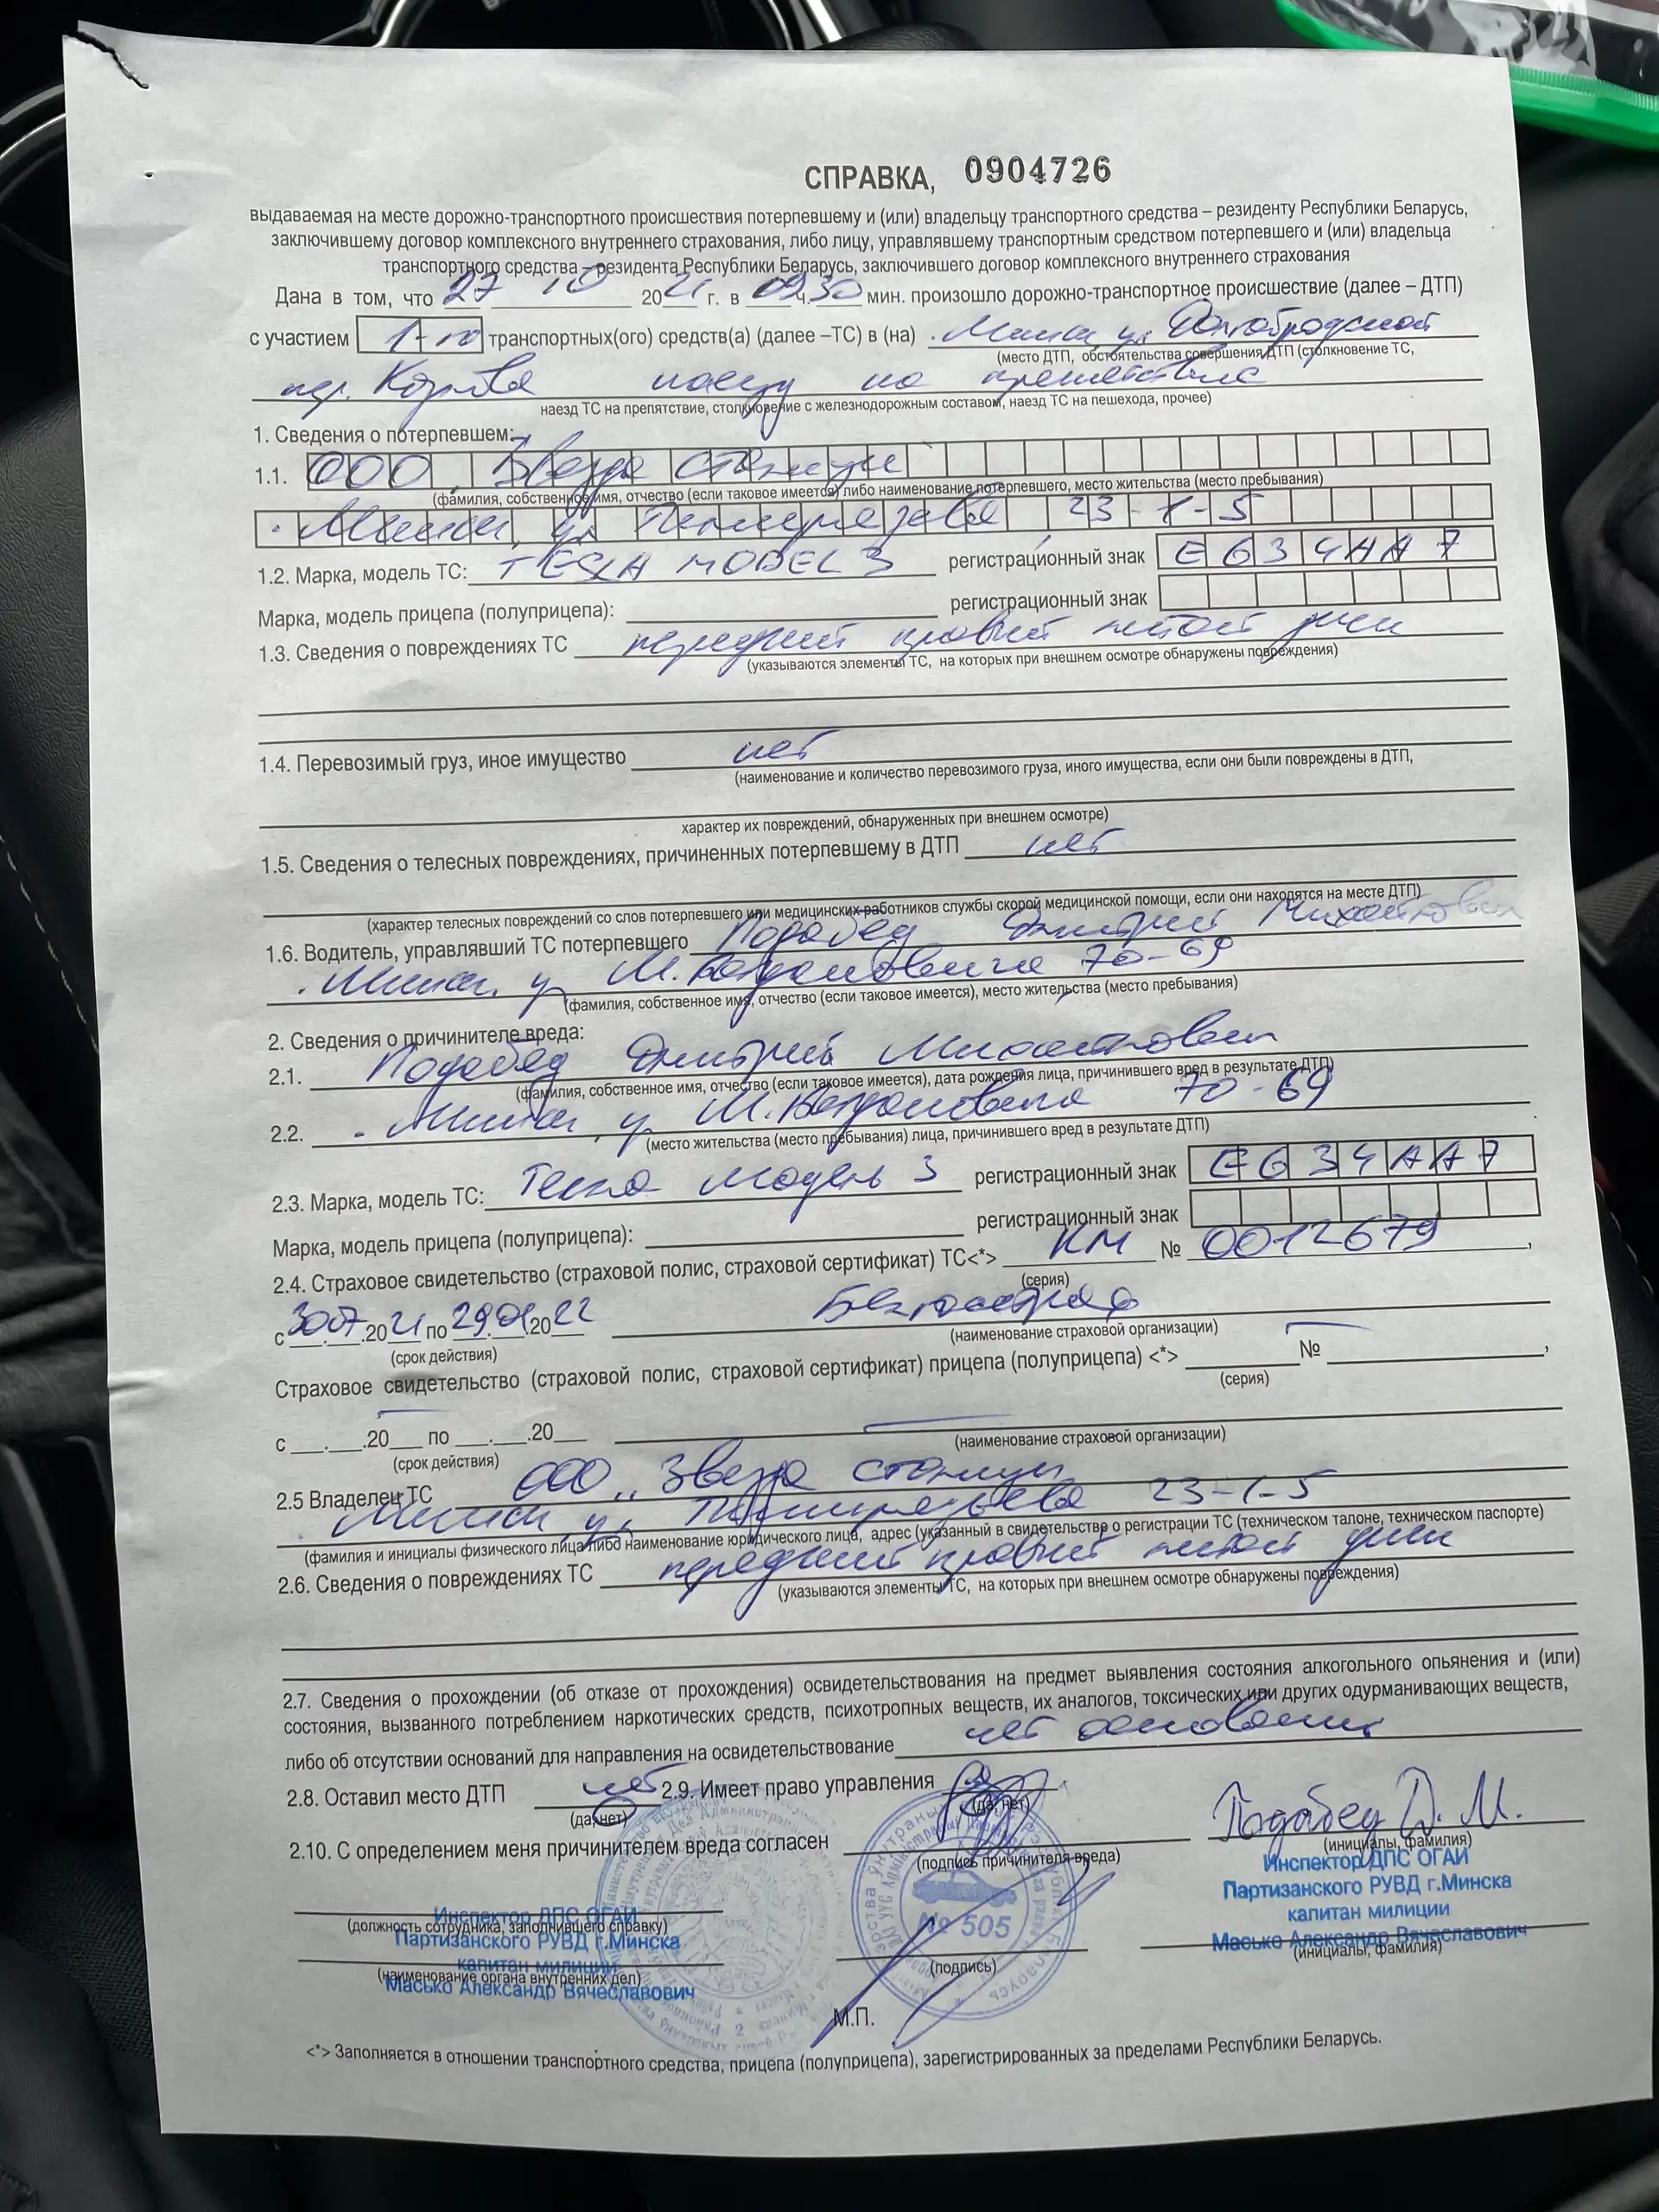 СПРАВКА, 0904726
выдаваемая на месте дорожно-транспортного происшествия потерпевшему и (или) владельцу транспортного средства – резиденту Республики Беларусь,
заключившему договор комплексного внутреннего страхования, либо лицу, управлявшему транспортным средством потерпевшего и (или) владельца
транспортного средства – резидента Республики Беларусь, заключившего договор комплексного внутреннего страхования
Дана в том, что 27 10 2021 г. в 09 ч. 30 мин. произошло дорожно-транспортное происшествие (далее – ДТП)
с участием 1-го транспортных(ого) средств(а) (далее –ТС) в (на) г. Минск ул. Долгобродской
(место ДТП, обстоятельства совершения ДТП (столкновение ТС,
пер. Козлова наезд на препятствие
наезд ТС на препятствие, столкновение с железнодорожным составом, наезд ТС на пешехода, прочее)
1. Сведения о потерпевшем:
1.1. ООО "Звезда столицы
(фамилия, собственное имя, отчество (если таковое имеется) либо наименование потерпевшего, место жительства (место пребывания)
г. Минск, ул. Тимирязева 23-1-5
1.2. Марка, модель ТС: TESLA MODEL 3 регистрационный знак E634AA7
Марка, модель прицепа (полуприцепа): регистрационный знак
1.3. Сведения о повреждениях ТС передний правый литой диск
(указываются элементы ТС, на которых при внешнем осмотре обнаружены повреждения)
1.4. Перевозимый груз, иное имущество нет
(наименование и количество перевозимого груза, иного имущества, если они были повреждены в ДТП,
характер их повреждений, обнаруженных при внешнем осмотре)
1.5. Сведения о телесных повреждениях, причиненных потерпевшему в ДТП нет
(характер телесных повреждений со слов потерпевшего или медицинских работников службы скорой медицинской помощи, если они находятся на месте ДТП)
1.6. Водитель, управлявший ТС потерпевшего Подабед Дмитрий Михайлович
г. Минск, ул. М. Богдановича 70-69
(фамилия, собственное имя, отчество (если таковое имеется), место жительства (место пребывания)
2. Сведения о причинителе вреда:
2.1. Подабед Дмитрий Михайлович
(фамилия, собственное имя, отчество (если таковое имеется), дата рождения лица, причинившего вред в результате ДТП)
2.2. г. Минск, ул. М. Богдановича 70-69
(место жительства (место пребывания) лица, причинившего вред в результате ДТП)
2.3. Марка, модель ТС: Тесла модель 3 регистрационный знак E634AA7
Марка, модель прицепа (полуприцепа): регистрационный знак
2.4. Страховое свидетельство (страховой полис, страховой сертификат) ТС<*> КМ № 0012679,
(серия)
с 30.07.2021 по 29.01.2022 Белгосстрах
(срок действия) (наименование страховой организации)
Страховое свидетельство (страховой полис, страховой сертификат) прицепа (полуприцепа) <*> №,
(серия)
с ___.___.20___ по ___.___.20___
(срок действия) (наименование страховой организации)
2.5 Владелец ТС ООО "Звезда столицы
г. Минск, ул. Тимирязева 23-1-5
(фамилия и инициалы физического лица либо наименование юридического лица, адрес (указанный в свидетельстве о регистрации ТС (техническом талоне, техническом паспорте)
2.6. Сведения о повреждениях ТС передний правый литой диск
(указываются элементы ТС, на которых при внешнем осмотре обнаружены повреждения)
2.7. Сведения о прохождении (об отказе от прохождения) освидетельствования на предмет выявления состояния алкогольного опьянения и (или)
состояния, вызванного потреблением наркотических средств, психотропных веществ, их аналогов, токсических или других одурманивающих веществ,
либо об отсутствии оснований для направления на освидетельствование нет оснований
2.8. Оставил место ДТП нет 2.9. Имеет право управления
(да, нет) (да, нет)
2.10. С определением меня причинителем вреда согласен Подабед Д. М.
(подпись причинителя вреда) (инициалы, фамилия)
Инспектор ДПС ОГАИ
Партизанского РУВД г.Минска
капитан милиции
Масько Александр Вячеславович
(инициалы, фамилия)
Инспектор ДПС ОГАИ
(должность сотрудника, заполнившего справку)
Партизанского РУВД г.Минска
капитан милиции
(наименование органа внутренних дел)
Масько Александр Вячеславович
№ 505
(подпись)
М.П.
<*> Заполняется в отношении транспортного средства, прицепа (полуприцепа), зарегистрированных за пределами Республики Беларусь.